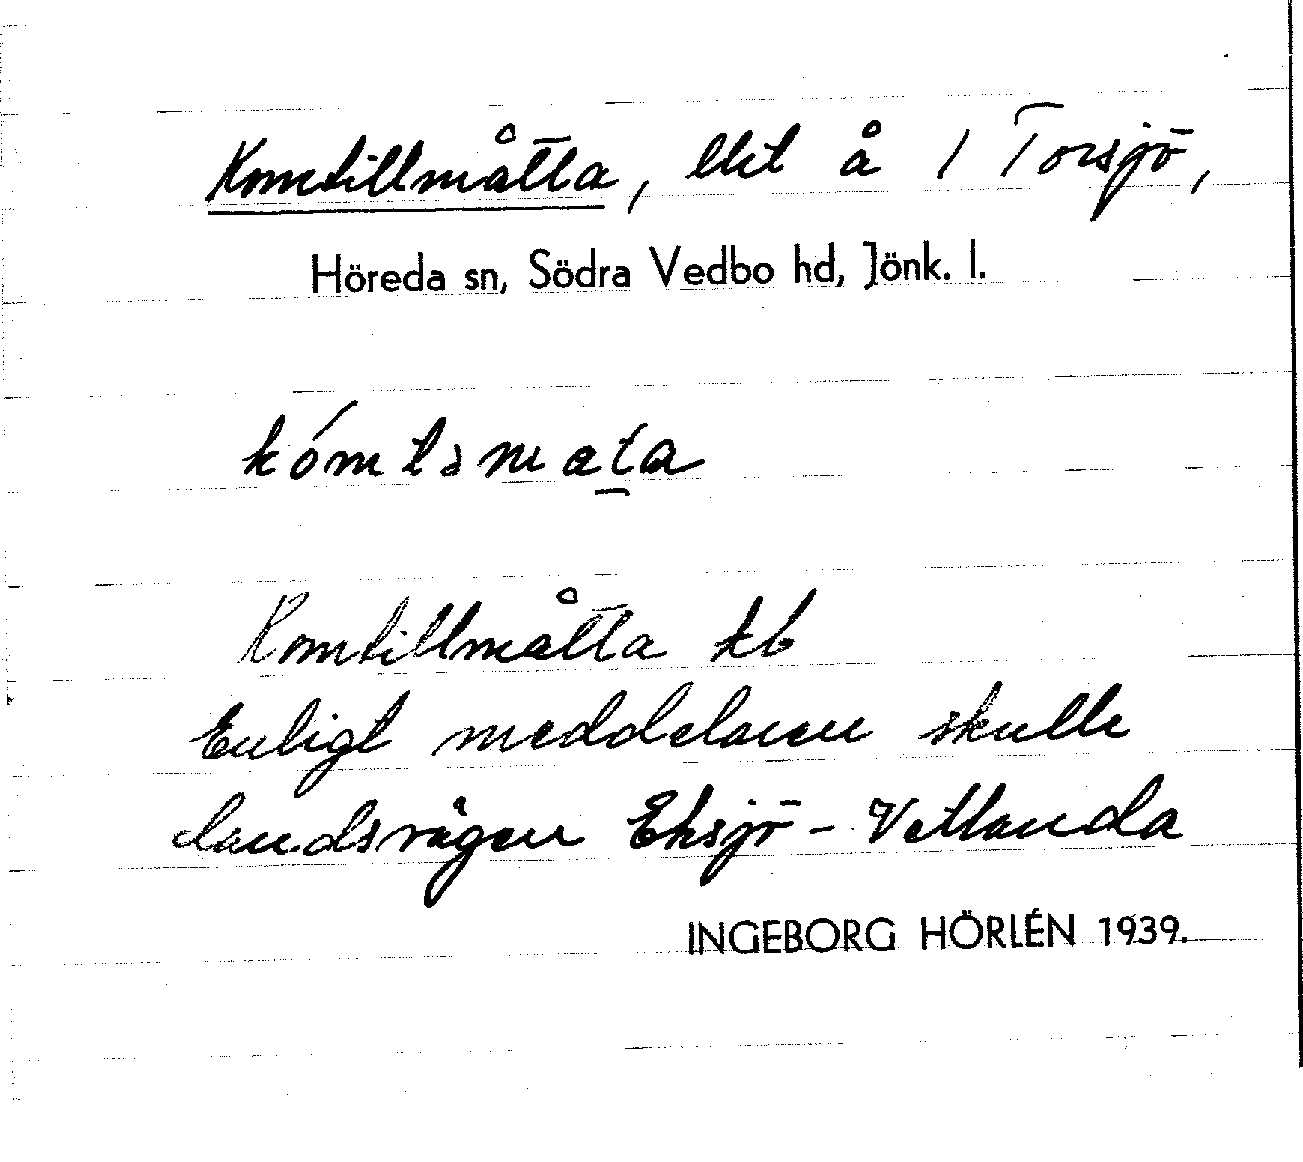 Komtillmåtta, litet å 1 Torsjö,
Höreda sn, Södra Vedbo hd, Jönk. l.
kómtsmata
Komtillmåtta kb
Enligt meddelaren skulle
landsvägen Eksjö - Vetlanda
INGEBORG HÖRLÉN 1939.